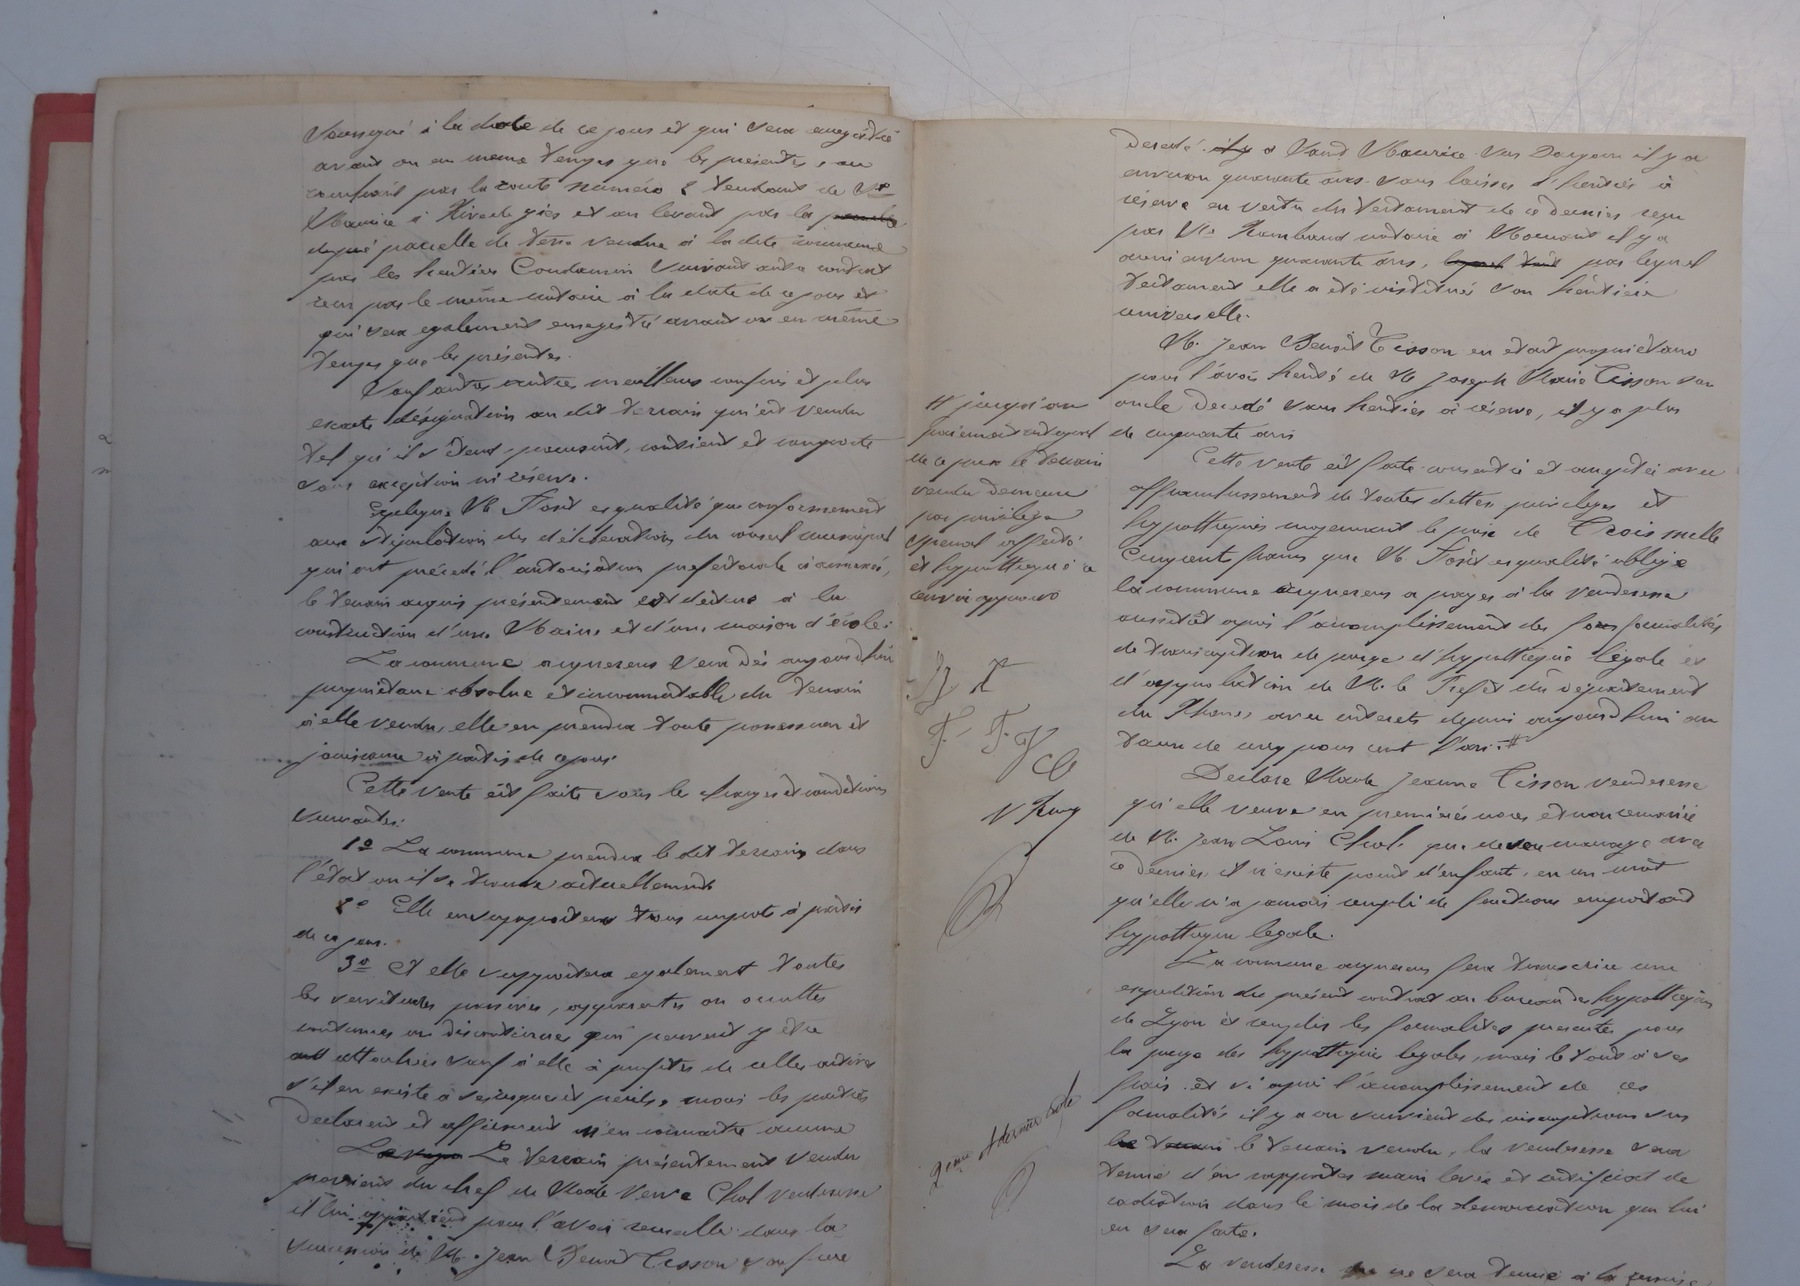 soussigné à la date de ce jour et qui sera enregistré
avant ou en meme temps que les présentes, au
couchant par la route numéro 2 tendant de St
Maurice à Rive de gier et au levant par la parcelle
parcelle de terre vendue à la dite commune
par les héritiers Condamin suivant autre contrat
recu par le même notaire à la date de ce jour et
qui sera egalement enregistré avant ou en même
temps que les présentes.
Sauf autres meilleurs confins et plus
exacte désignation au dit terrain qui est vendu
tel qu'il s'étend, poursuit, contient et comporte
sans exception ni réserve.
Explique Mr Font es qualité que conformement
aux stipulations des délibérations du conseil municipal
qui ont précédé l'autorisation prefectorale ci annexée,
le terrain acquis présentement est destiné à la
construction d'une Mairie et d'une maison d'école.
La commune acquereur sera dès aujourd'hui
propriétaire absolue et incommutable du terrain
à elle vendu, elle en prendra toute possession et
jouissance à partir de ce jour.
Cette vente est faite sous les charges et conditions
suivantes:
1º La commune prendra le dit terrain dans
l'état où il se trouve actuellement
2º Elle en supportera tous impots à partir
de ce jour.
3º Et elle supportera egalement toutes
les servitudes passives, apparentes ou occultes
continues ou discontinues qui peuvent y être
attachées sauf à elle à profiter de celles actives
s'il en existe à ses risques et périls, mais les parties
declarent et affirment n'en connaitre aucune
Le terrain présentement vendu
provient du chef de Made Veuve Chol venderesse
il lui appartient pour l'avoir recueilli dans la
succession de M. Jean Benoit Tisson son frere
décédé à Saint Maurice sur Dargoire il y a
environ quarante ans sans laisser d'héritiers à
réserve en vertu du testament de ce dernier reçu
par Me Rambaud notaire à Mornant il y a
aussi environ quarante ans, par lequel
testament elle a été instituée son héritière
universelle.
M. Jean Benoit Tisson en etait propriétaire
pour l'avoir hérité de M Joseph Marie Tisson son
oncle decedé sans héritiers à réserve, il y a plus
de cinquante ans
Cette vente est faite consentie et acceptée avec
affranchissement de toutes dettes, privileges et
hypothèques moyennant le prix de Trois mille
cinq cent francs que M Font es qualité oblige
la commune acquereur a payer à la venderesse
aussitôt après l'accomplissement des formalités
de transcription de purge d'hypothèque légale et
d'approbation de M. le Prefet du département
du Rhône, avec interets depuis aujourd'hui au
taux de cinq pour cent l'an.#
Declare Made Jeanne Tisson venderesse
qu'elle veuve en premières noces et non remariée
de M. Jean Louis Chol. que de son mariage avec
ce dernier il n'existe point d'enfant, en un mot
qu'elle n'a jamais rempli de fonctions emportant
hypothèque legale.
La commune acquereur fera transcrire une
expédition du présent contrat au bureau des hypothèques
de Lyon et remplir les formalités prescrites pour
la purge des hypothèques legales, mais le tout à ses
frais. et si après l'accomplissement de ces
formalités il y a ou survient des inscriptions sur
le terrain vendu, la venderesse sera
tenue d'en rapporter main levée et certificat de
radiation dans le mois de la denonciation qui lui
en sera faite.
La venderesse ne sera tenue à la
# jusqu'au
paiement integral
de ce prix le terrain
vendu demeure
par privilège
spécial affecté
et hypothéqué
renvoi approuvé
2eme